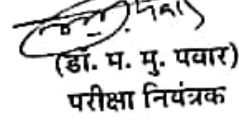 (डॉ. प. मु. पवार)
परीक्षा नियंत्रक